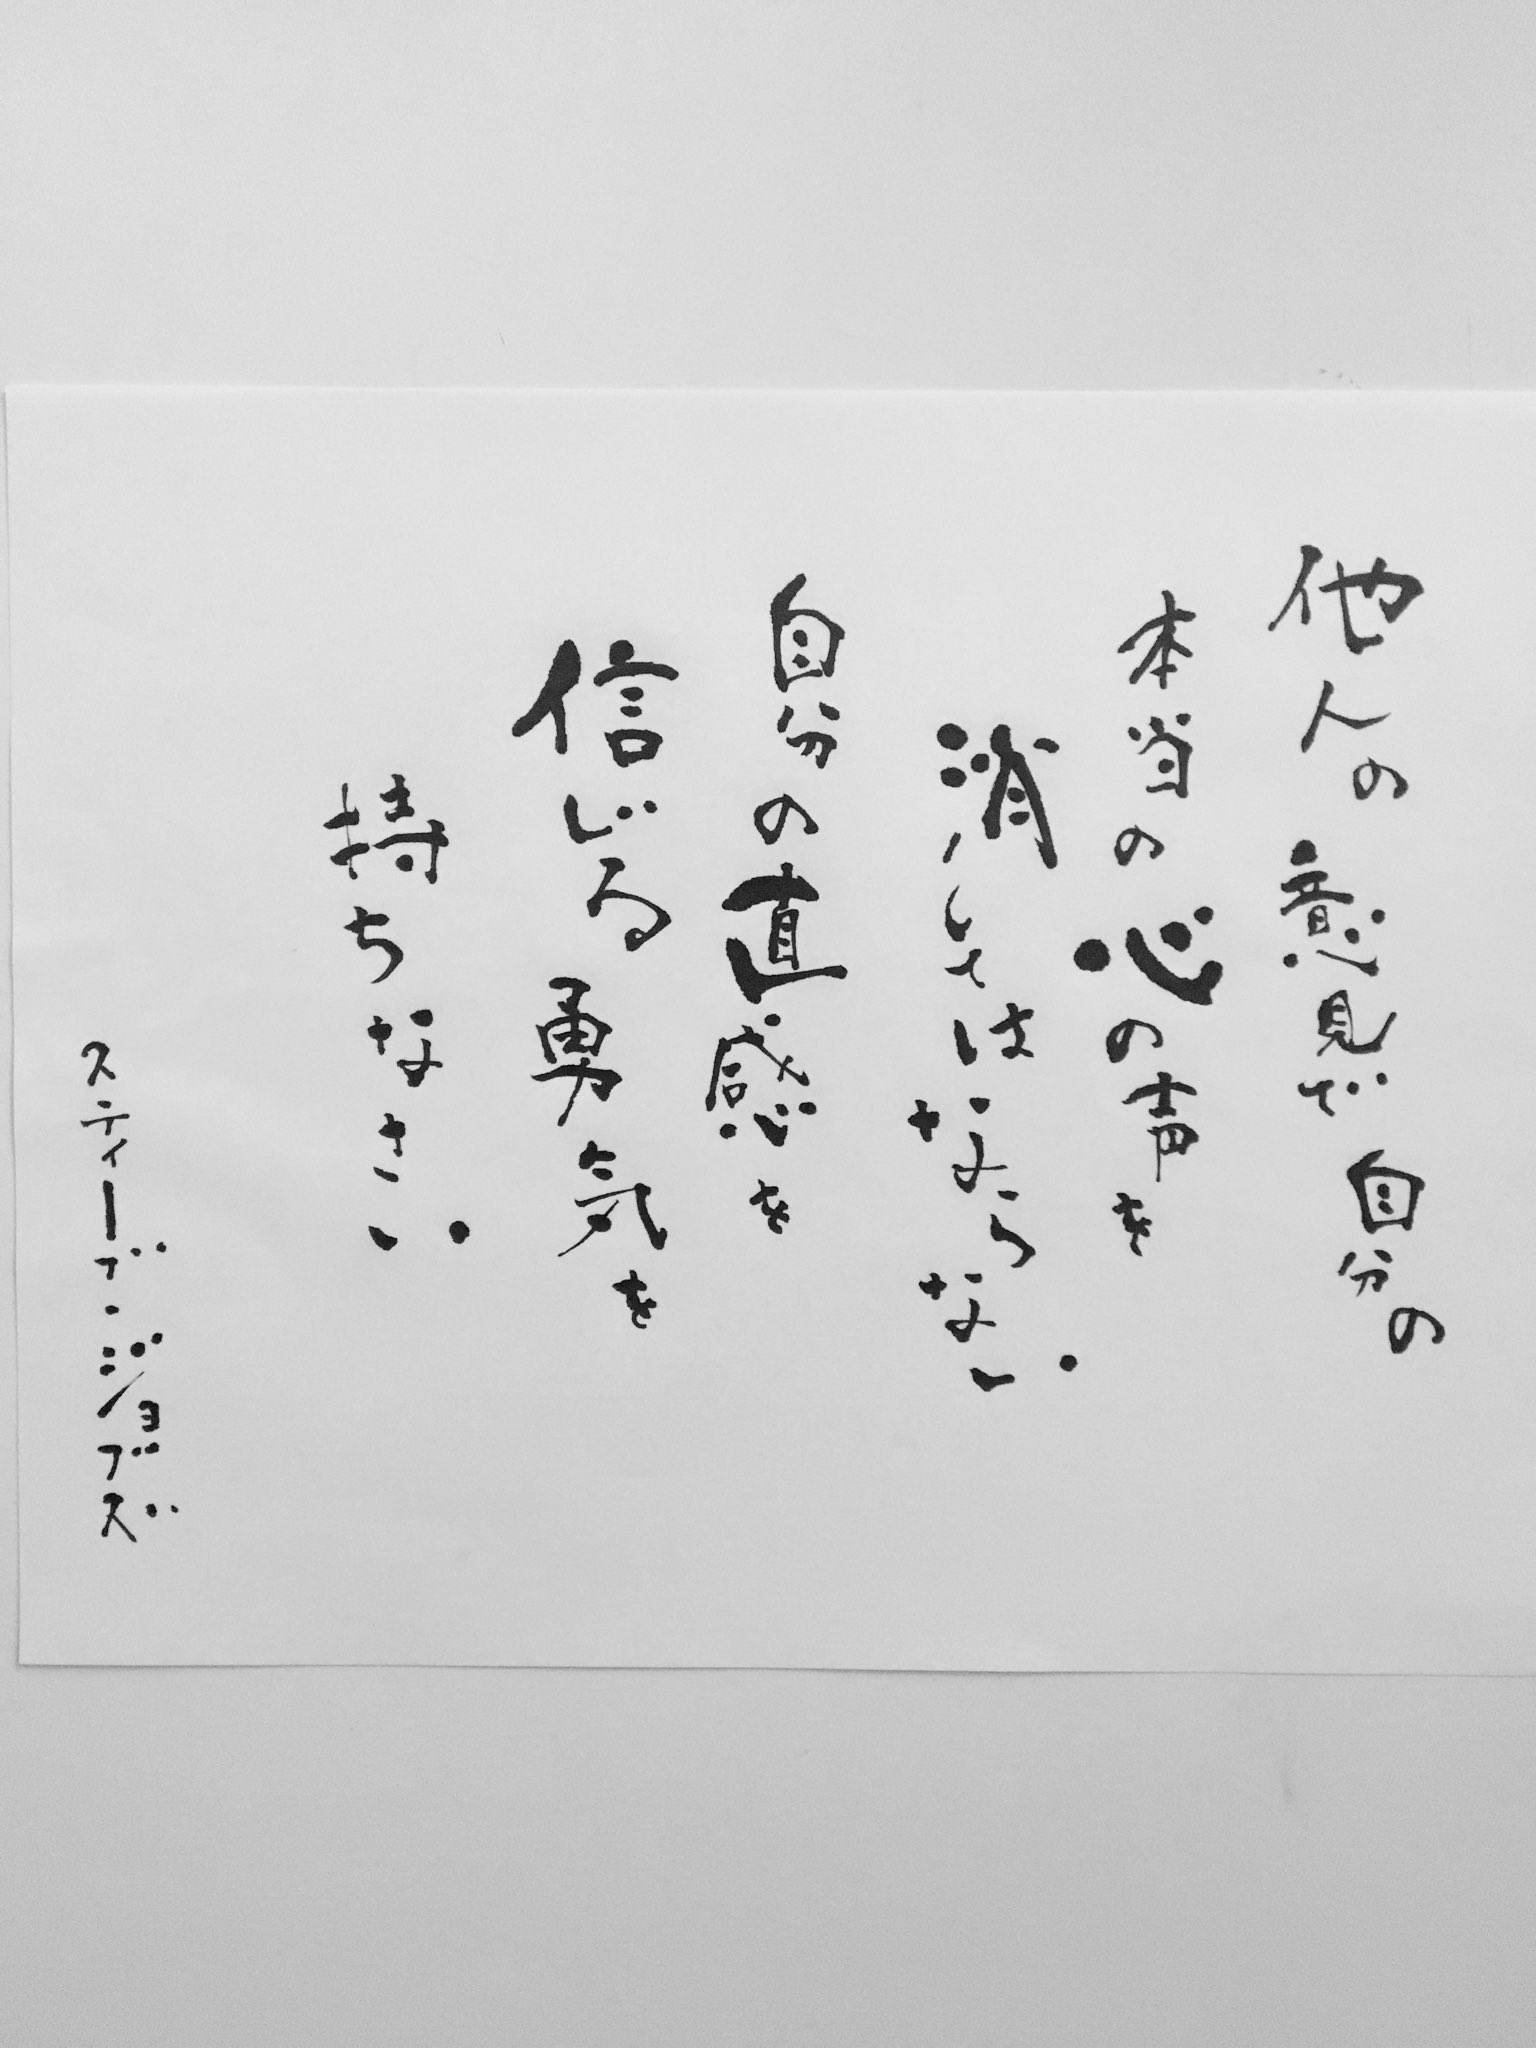 他人の意見で自分の
本当の心の声を
消してはならない
自分の直感を
信じる勇気を
持ちなさい
スティーブ・ジョブズ